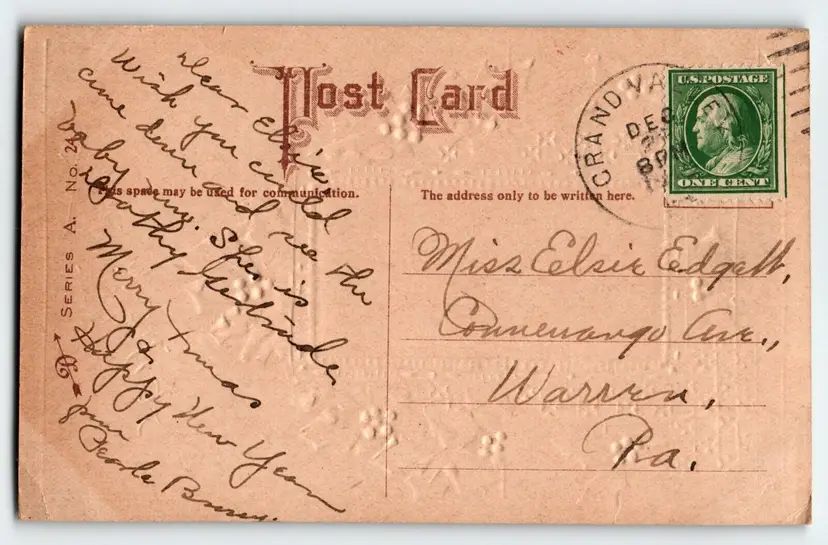 Post Card
This space may be used for communication.
The address only to be written here.
SERIES A. No. 24
U.S. POSTAGE
ONE CENT
GRAND VALLEY
DEC
8 PM
Dear Elsie
Wish you could
come down and see the
baby. She is
Merry Xmas
Happy New Year
from
Miss Elsie Edgett,
Connewango Ave.,
Warren,
Pa.